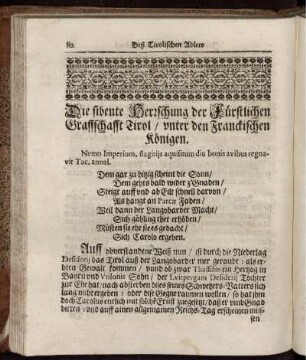 82 Deß Tirolischen Adlers
Die sibente Herrschung der Fürstlichen
Graffschafft Tirol / unter den Franckischen
Königen.
Nemo Imperium, flagitijs aquisitum diu bonis avibus regna-
vit Tac. annal.
Dem gar zu hitzig scheint die Sonn /
Dem gehts bald wider z'Gnaden /
Steigt auff und ab Eilt schnell darvon /
Als hangt an Parcæ Faden /
Weil dann der Langobarder Macht /
Sich gähling thet erhöben /
Müsten sie eh
Sich Carolo ergeben.
Auff obverstandene Weiß nun / ist durch die Niderlag
Desiderij das Tirol auß der Langobarder
erbten Gewalt kommen / und ob zwar Thassilo ein Hertzog in
Bayrn und Sohn / der Luitpergam Desiderij Tochter
zur Ehe hat / nach absterben dises seines Schwehers-Vatters sich
lang nicht ergeben : oder diße Gegnt raumen wollen / so hat ihm
doch Carolus entlich mit solche Ernst zugesetzt / daß er umb Gnad
betten / und auff einen allgemainen Reichs-Tag erscheinen müs-
sen